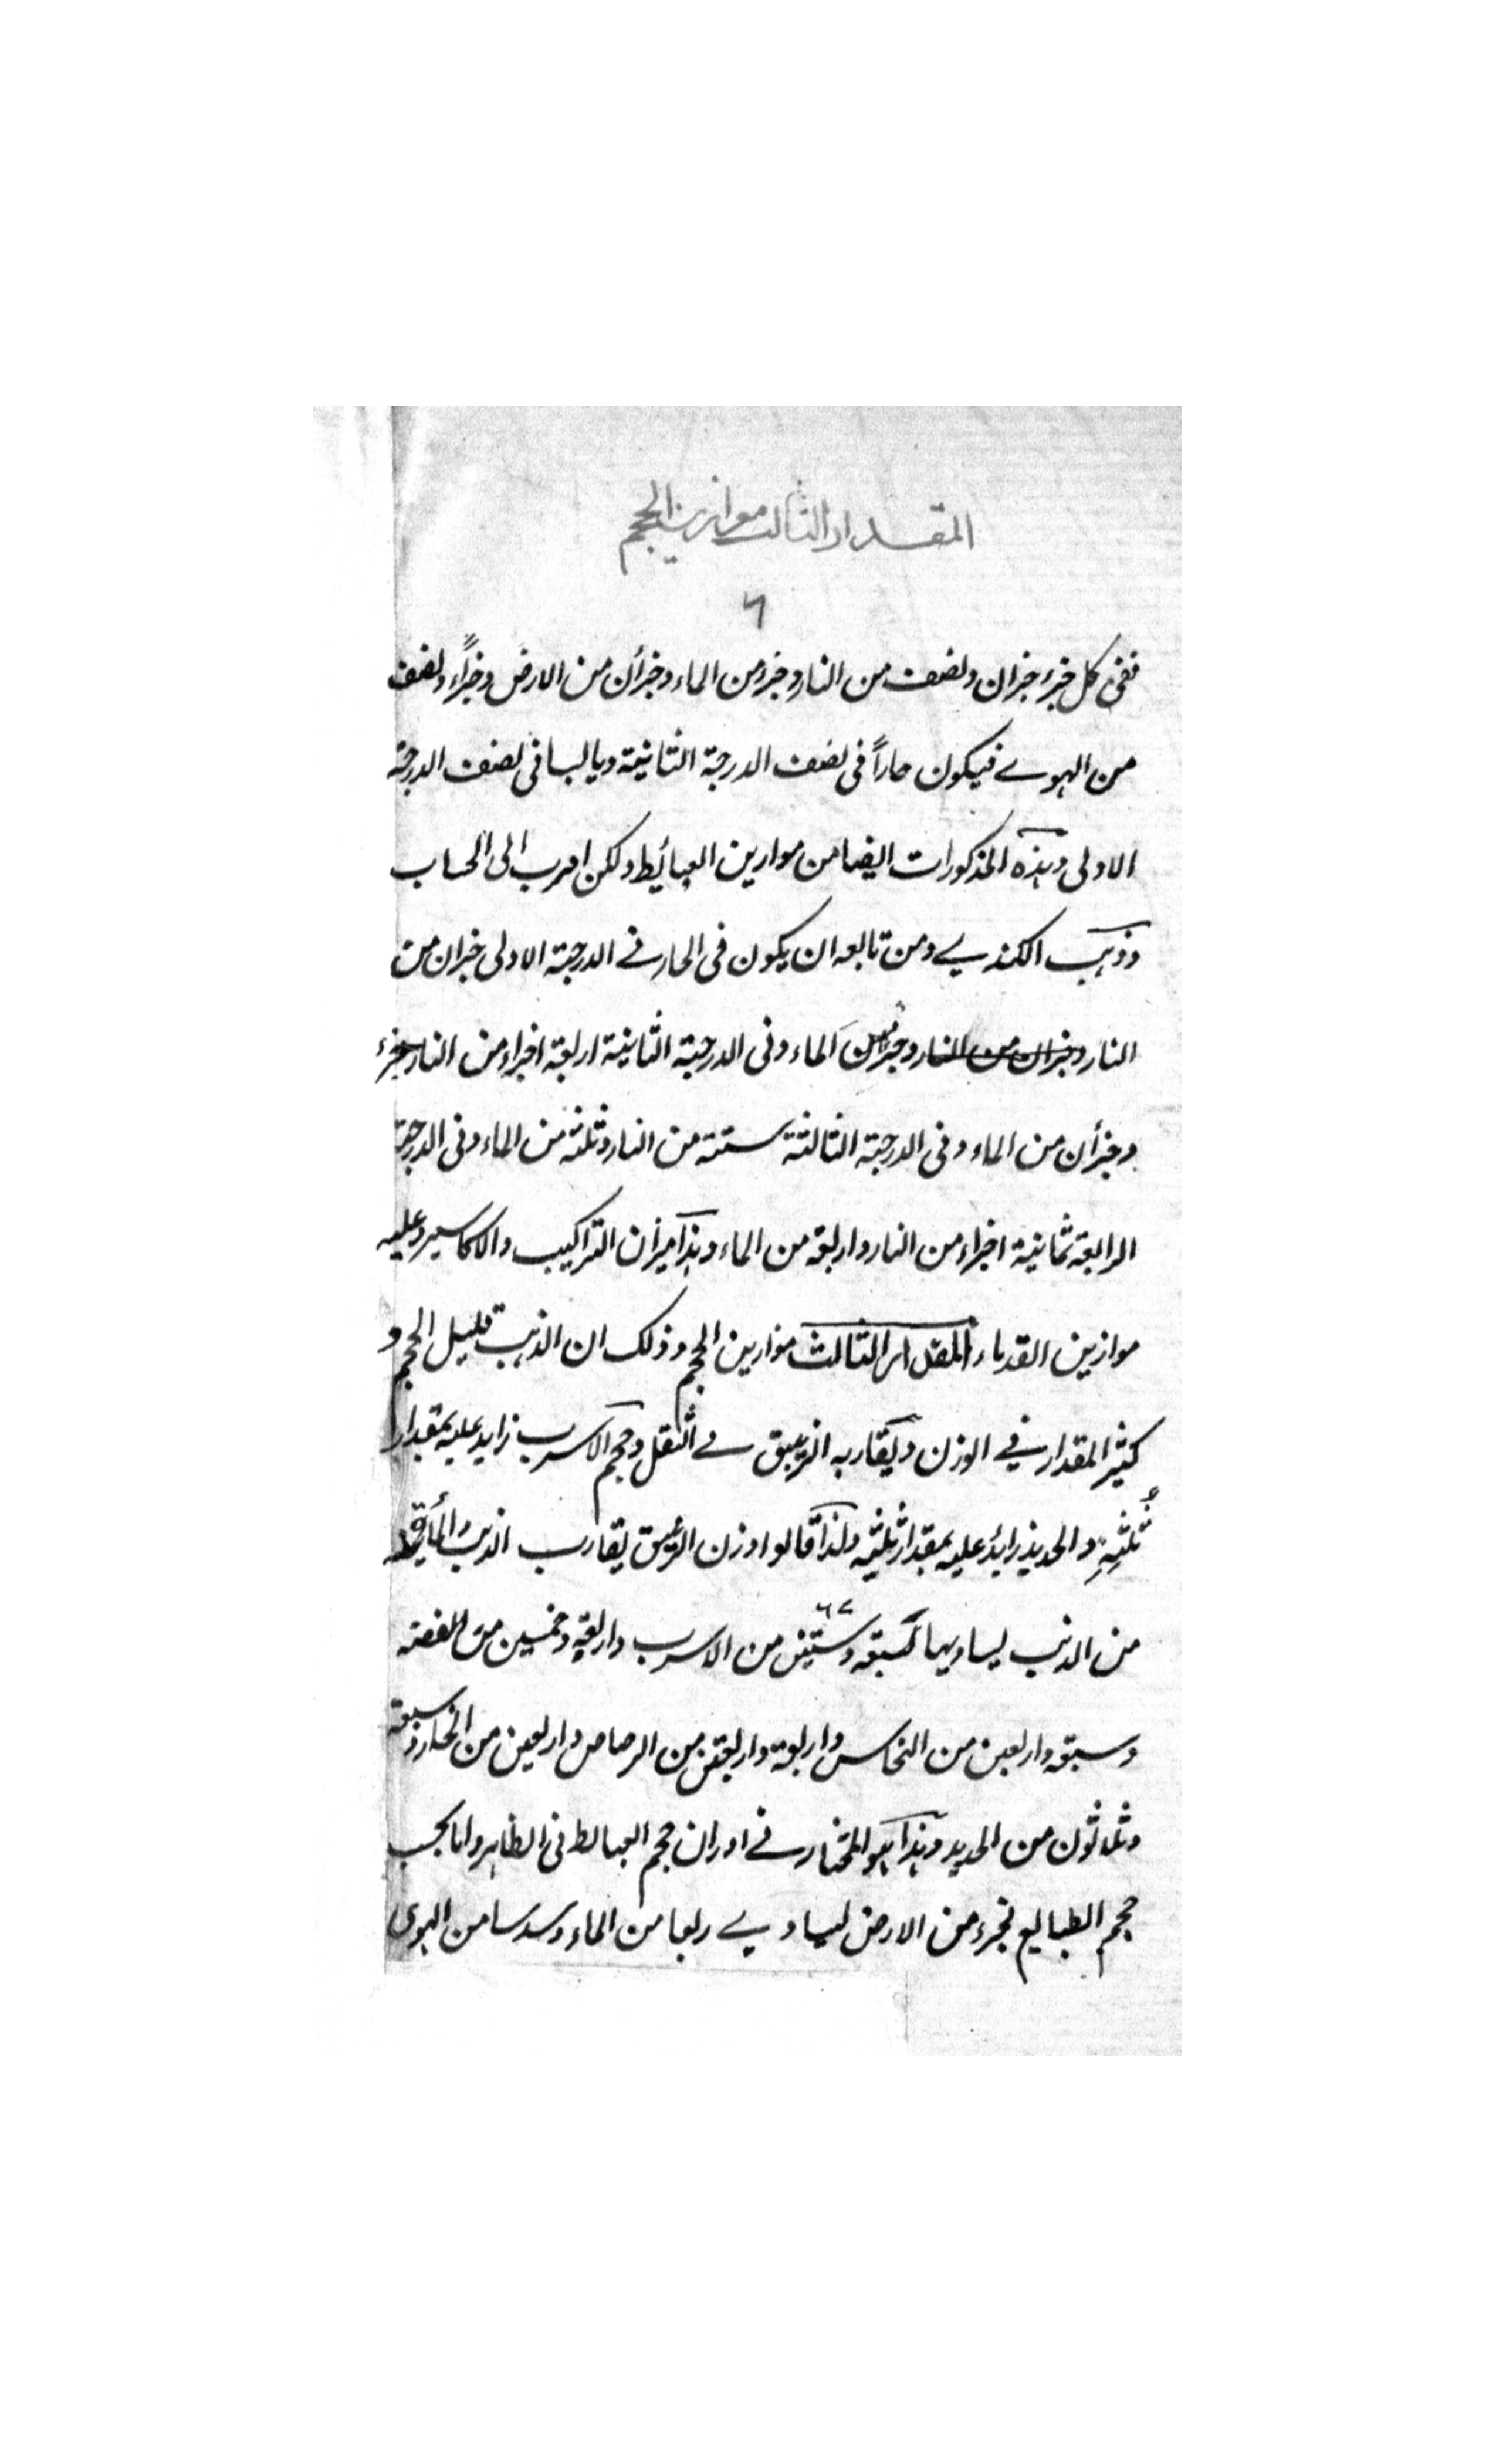 المقدار الثالث موازين الحجم
٦
ففى كل جزء جزان ونصف من النار وجزء من الماء وجزأن من الارض وجزاً ونصف
من الهوے فيكون حاراً فى نصف الدرجة الثانية ويابسا فى نصف الدرجة
الاولى وهذه المذكورات ايضا من موازين البسائط ولكن اقرب الى الحساب
وذهب الكندے ومن تابعه ان يكون فى الحار فے الدرجة الاولى جزان من
النار وجزان من النار وجزء من الماء وفى الدرجة الثانية اربعة اجزاء من النار جزء
وجزأن من الماء وفى الدرجة الثالثة ستة من النار وثلثة من الماء وفى الدرجة
الرابعة ثمانية اجزاء من النار واربعة من الماء وهذا ميزان التراكيب والاكاسير وعليه
موازين القدماء المقدار الثالث موازين الحجم وذلك ان الذهب قليل الحجم و
كثير المقدار فے الوزن ويقاربه الزيبق فے الثقل وحجم الاسرب زايد عليه بمقدار
ثُلثِهِ والحديد زايدٌ عليه بمقدار ثلثيه ولذا قالوا وزن الزيبق يقارب الذهب
من الذهب يساويها سبعة وستين من الاسرب واربعة وخمسين من الفضة
٦٧
وسبعة واربعين من النحاس واربعة واربعين من الرصاص واربعين من الخار وسبعة
وثلاثون من الحديد وهذا هو المختار فے اوزان حجم البسائط فى الظاهر واما بحسب
حجم الطبايع فجزء من الارض يساوے ربعا من الماء وسدسا من الهوى